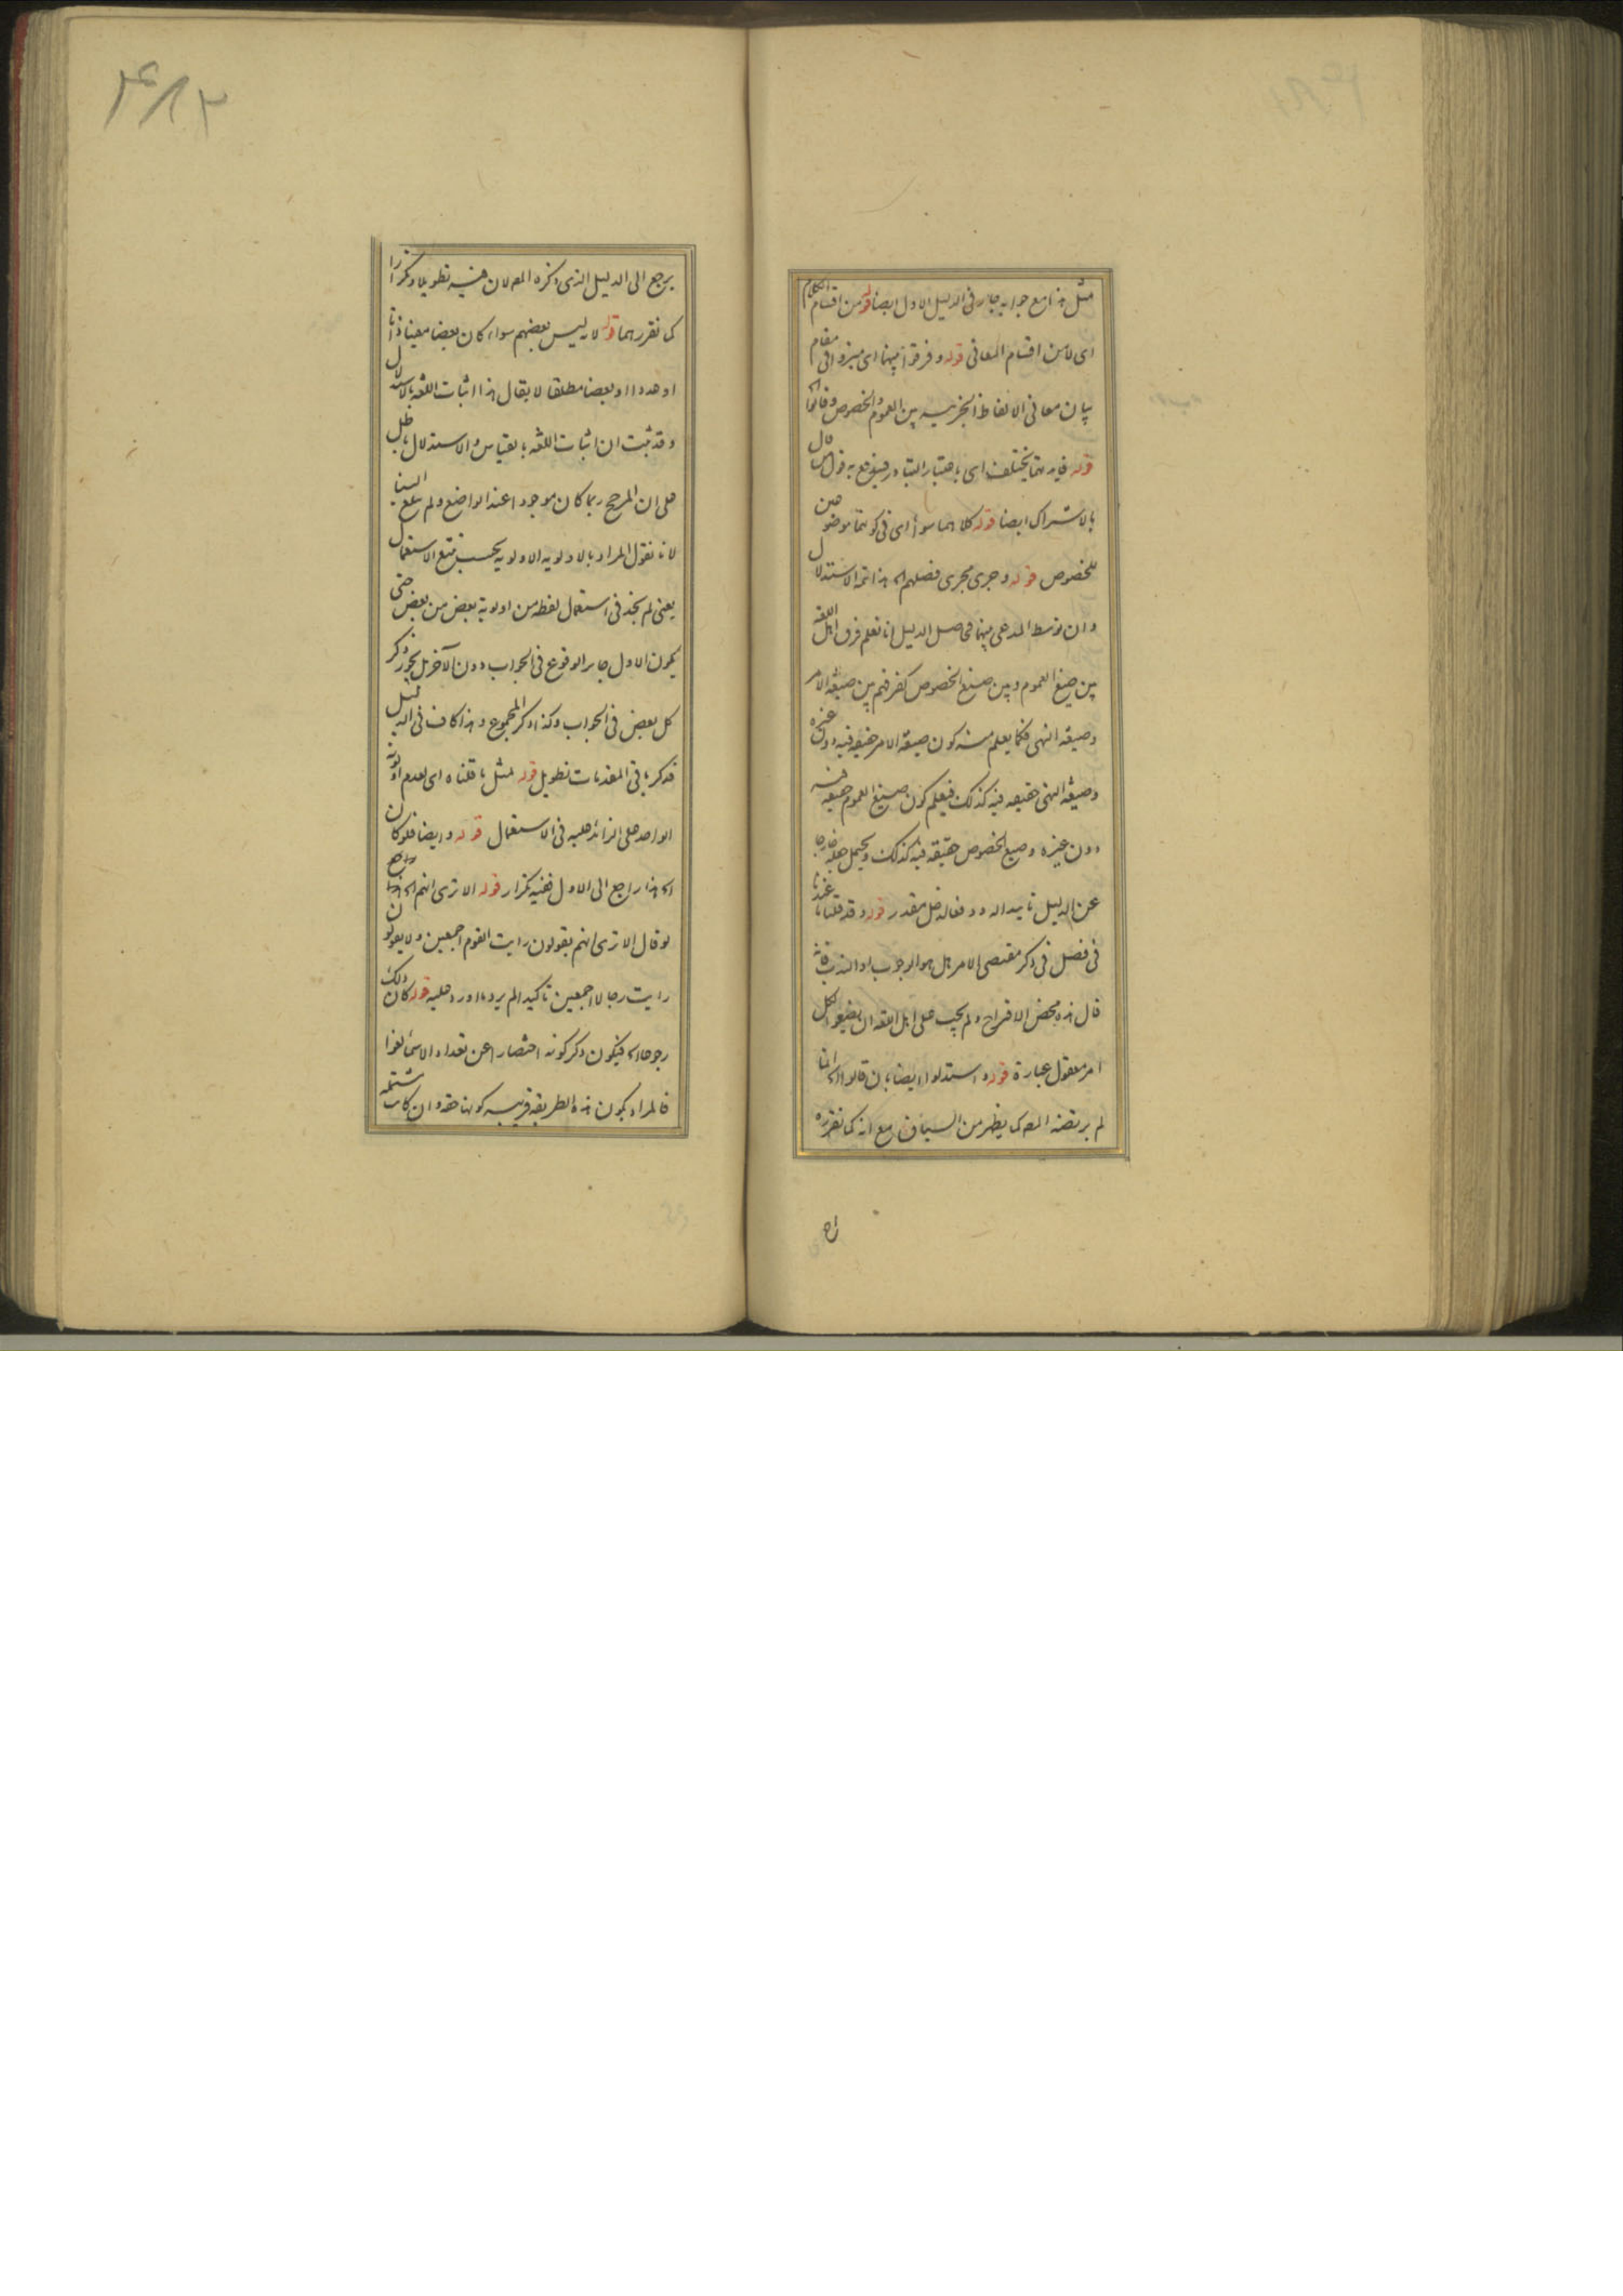 مثل هذا مع جوابه جار فى الدليل الاول ايضا قوله من اقسام الكلام
اى لا من اقسام المعانى قوله و فرقوا بينها اى ميزوا فى مقام
بيان معانى الالفاظ الجزئيه بين العموم و الخصوص و قالوا
قوله فانه مما يختلف اى باعتبار التبادر
بالاشتراك ايضا قوله كلاهما سواء اى فى كونهما موضوعين
للخصوص قوله و جرى مجرى فصلهم اه هذا تتمه الاستدلال
و ان توسط المدعى بينها فحاصل الدليل انا نعلم فرق اهل اللغه
بين صيغ العموم و بين صيغ الخصوص كفرقهم بين صيغه الامر
و صيغه النهى فكما يعلم منه كون صيغه الامر حقيقه فيه دون غيره
و صيغه النهى حقيقه فيه كذلك فيعلم كون صيغ العموم حقيقه فيه
دون غيره و صيغ الخصوص حقيقه فيه كذلك و يحتمل جعله خارجا
عن الدليل تاييدا له و دفعا لدخل مقدر قوله و قد قلنا ما عندنا
فى فصل فى ذكر مقتضى الامر هل هو الوجوب او الندب فانه
قال هذه محض الاقتراح و لم يجب على اهل اللغه ان يضعوا لكل
امر معقول عبارة قوله و استدلوا ايضا بان قالوا اه انما
لم يرتضه المص كما يظهر من السياق مع انه كما نقرره
يرجع الى الدليل الذى ذكره المص لان فيه تطويلا و تكرارا
كما نقررهما قوله لانه ليس بعضهم سواء كان بعضا معينا ذاتا
او عددا او بعضا مطلقا لا يقال هذا اثبات اللغه بالاستدلال
و قد ثبت ان اثبات اللغه بالقياس و الاستدلال باطل
على ان المرجح ربما كان موجودا عند الواضع و لم يبلغ الينا
لانا نقول المراد بالاولويه الاولويه بحسب تتبع الاستعمال
يعنى لم نجد فى استعمال لفظه من اولوية بعض من بعض حتى
يكون الاول جايز الوقوع فى الجواب دون الآخر بل يجوز ذكر
كل بعض فى الجواب و كذا ذكر المجموع و هذا كاف فى الدليل
فذكر باقى المقدمات تطويل قوله لمثل ما قلناه اى لعدم اولوية
الواحد على الزائد عليه فى الاستعمال قوله و ايضا فلو كان
اه هذا راجع الى الاول ففيه تكرار قوله الا ترى انهم اه
لو قال الا ترى انهم يقولون رايت القوم اجمعين و لا يقولون
رايت رجالا اجمعين تاكيدا لم يرد ما اورد عليه قوله كان ذلك
رجوعا اه فيكون ذكر كونه اختصارا عن تعداد الاسماء لغوا
فالمراد بكون هذه الطريقه قريبه كونها حقه و ان كانت مشتمله